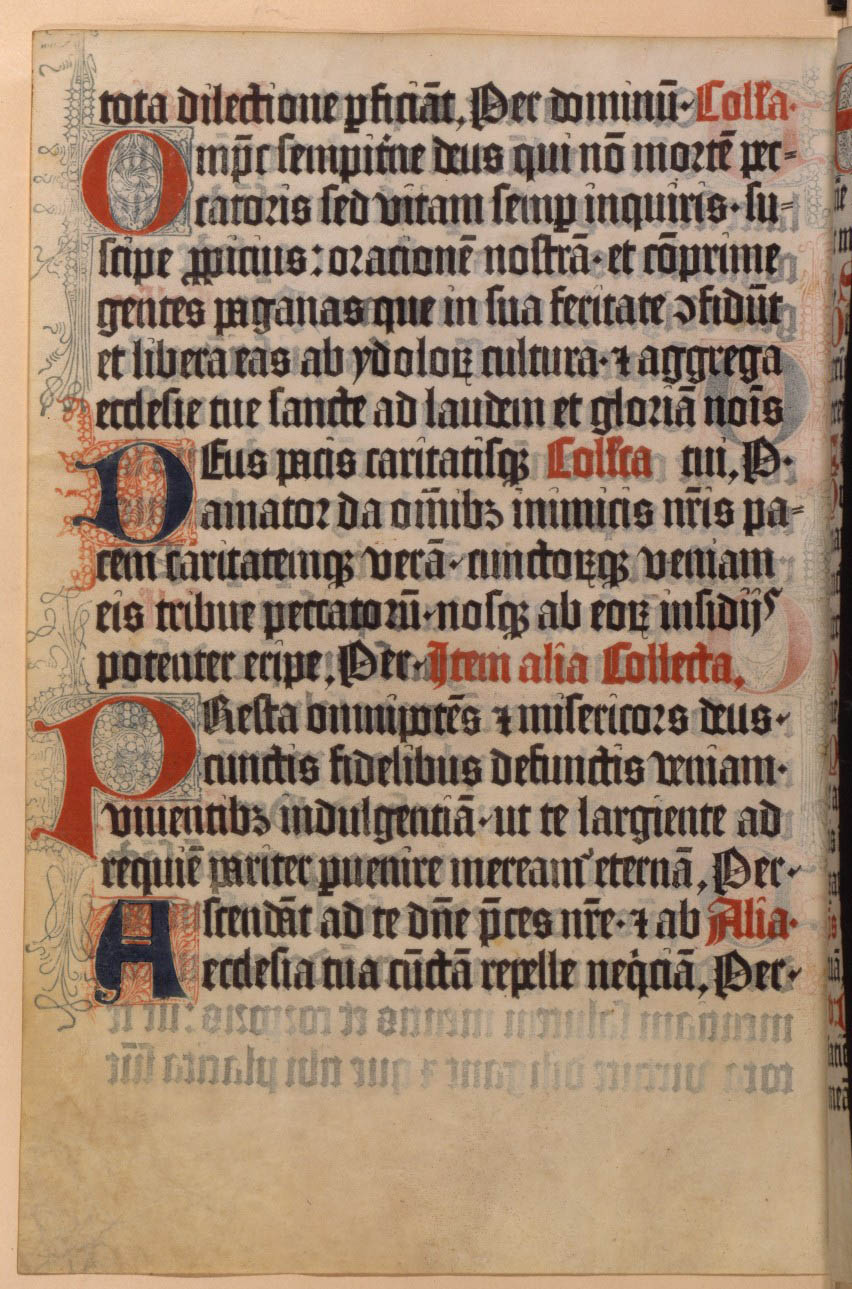 tota dilectione ꝑficiāt, Per dominū. Coll'a.
Omp̄c sempit'ne deus qui nō mortē pec-
catoris sed vitam semꝑ inquiris. su-
scipe ꝓpicius: oracionē nostrā. et cōprime
gentes paganas que in sua feritate ꝯfidūt
et libera eas ab ydoloꝝ cultura. ⁊ aggrega
ecclesie tue sancte ad laudem et gloriā noīs
DEus pacis caritatisqꝫ Coll'cta tui, P.
amator da om̄ibꝫ inimicis nr̄is pa-
cem caritatemqꝫ verā. cunctoꝝqꝫ veniam
eis tribue peccatorū. nosqꝫ ab eoꝝ insidijs
potenter eripe, Per. Item alia Collecta,
PResta omnipotēs ⁊ misericors deus.
cunctis fidelibus defunctis veniam.
viuentibꝫ indulgentiā. ut te largiente ad
requiē pariter ꝑuenire meream' eternā, Per.
Ascendāt ad te dn̄e p̄ces nr̄e. ⁊ ab Alia.
ecclesia tua cūctā repelle neq'ciā, Per.